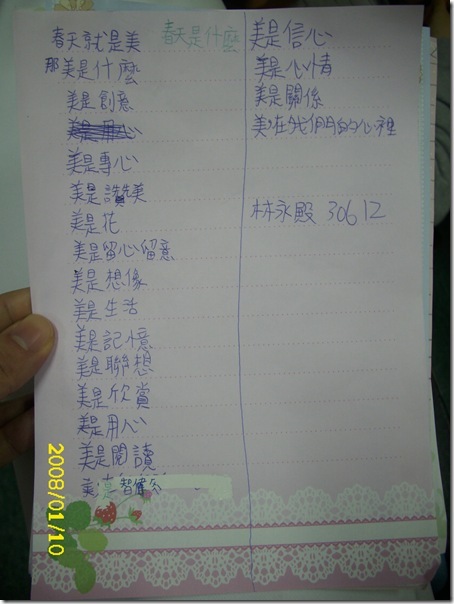 春天就是美
春天是什麼
那美是什麼
美是創意
美是用心
美是專心
美是讚美
美是花
美是留心留意
美是想像
美是生活
美是記憶
美是聯想
美是欣賞
美是用心
美是閱讀
美是智
美是信心
美是心情
美是關係
美在我們的心裡
林永殿 306.12
2008/01/10